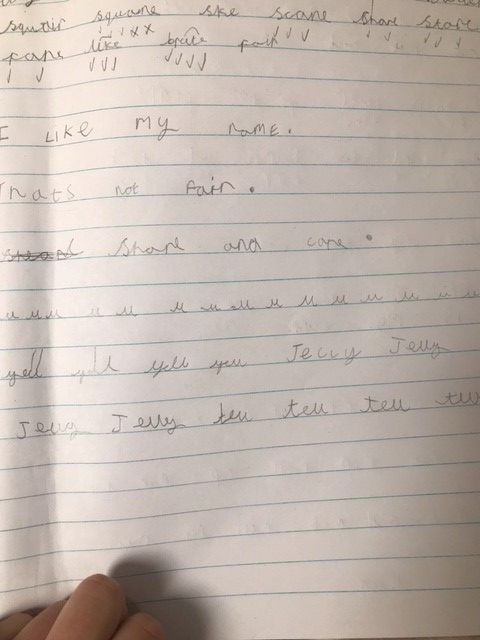 squair square ske scare share stare
fare like brake fair
I LIKE MY NAME.
Thats not fair.
share and care.
yell yell yell yell Jelly Jelly
Jelly Jelly tell tell tell tell